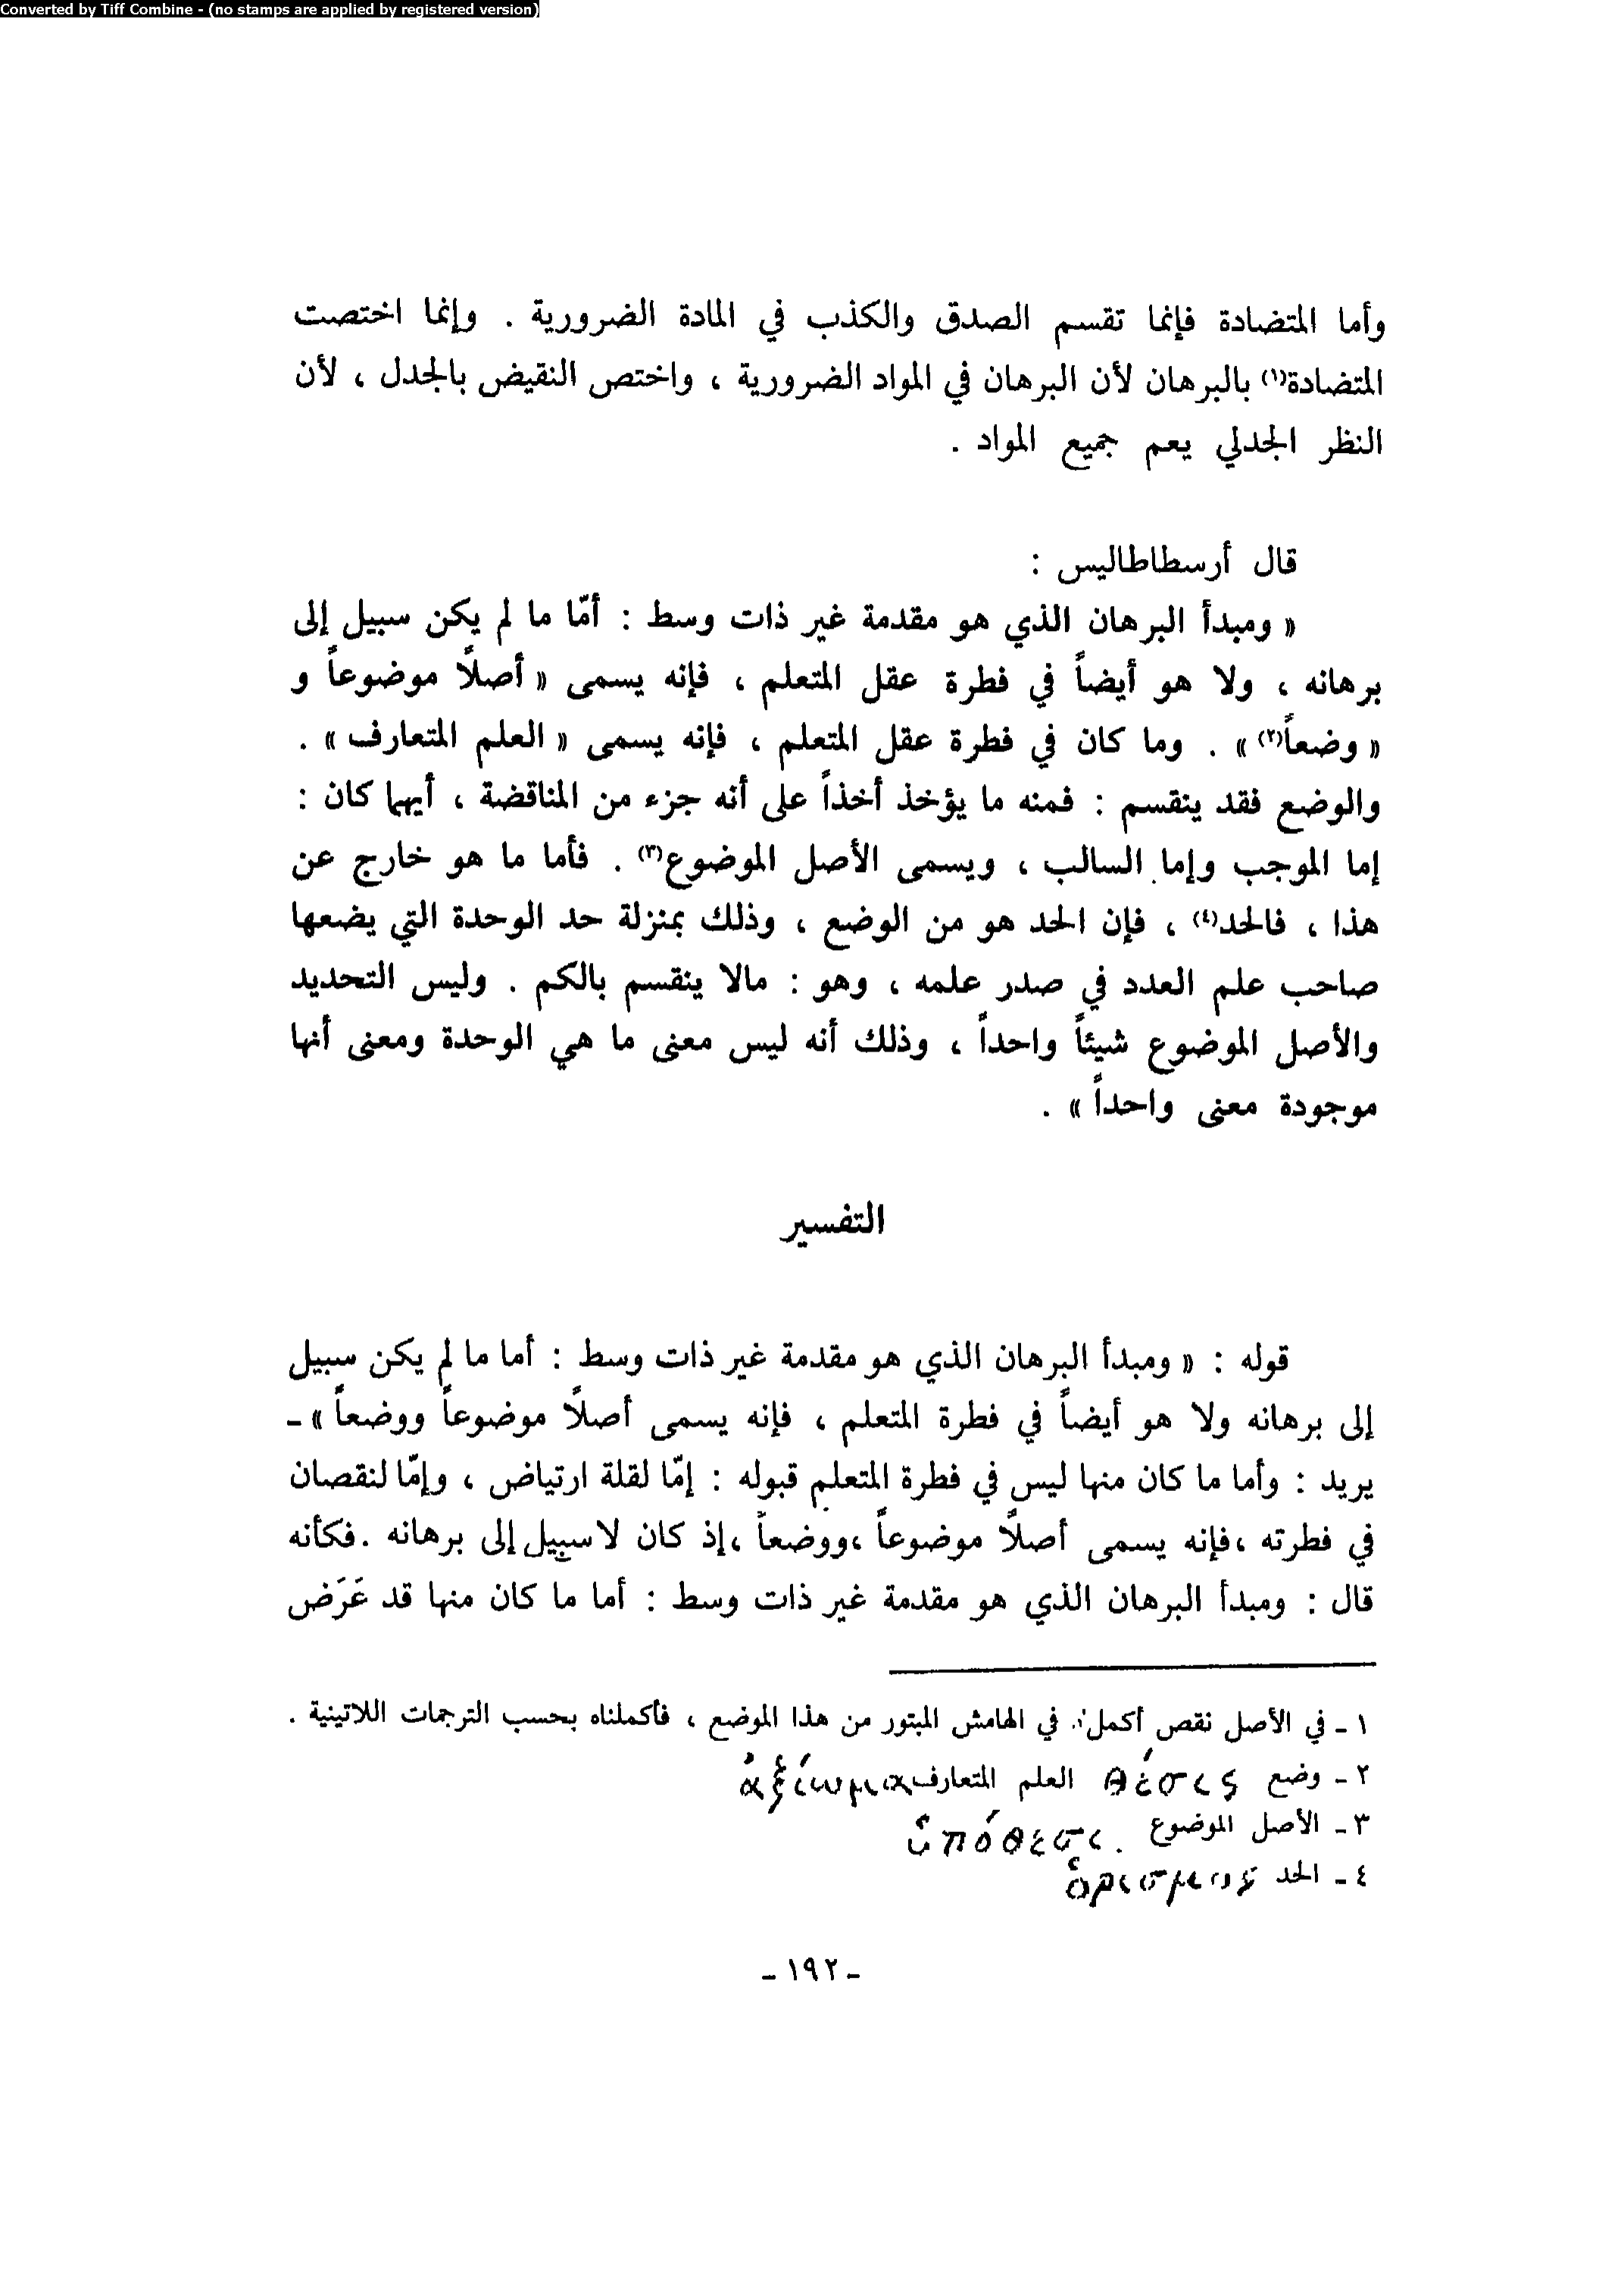 Converted by Tiff Combine - (no stamps are applied by registered version)
وأما المتضادة فإنما تقسم الصدق والكذب في المادة الضرورية . وإنما اختصت
المتضادة(١) بالبرهان لأن البرهان في المواد الضرورية ، واختص النقيض بالجدل ، لأن
النظر الجدلي يعم جميع المواد .
قال أرسطاطاليس :
« ومبدأ البرهان الذي هو مقدمة غير ذات وسط : أمّا ما لم يكن سبيل إلى
برهانه ، ولا هو أيضاً في فطرة عقل المتعلم ، فإنه يسمى « أصلاً موضوعاً و
« وضعاً(٢) » . وما كان في فطرة عقل المتعلم ، فإنه يسمى « العلم المتعارف » .
والوضع فقد ينقسم : فمنه ما يؤخذ أخذاً على أنه جزء من المناقضة ، أيهما كان :
إما الموجب وإما السالب ، ويسمى الأصل الموضوع(٣) . فأما ما هو خارج عن
هذا ، فالحد(٤) ، فإن الحد هو من الوضع ، وذلك بمنزلة حد الوحدة التي يضعها
صاحب علم العدد في صدر علمه ، وهو : مالا ينقسم بالكم . وليس التحديد
والأصل الموضوع شيئاً واحداً ، وذلك أنه ليس معنى ما هي الوحدة ومعنى أنها
موجودة معنى واحداً » .
التفسير
قوله : « ومبدأ البرهان الذي هو مقدمة غير ذات وسط : أما ما لم يكن سبيل
إلى برهانه ولا هو أيضاً في فطرة المتعلم ، فإنه يسمى أصلاً موضوعاً ووضعاً » -
يريد : وأما ما كان منها ليس في فطرة المتعلم قبوله : إمّا لقلة ارتياض ، وإمّا لنقصان
في فطرته ،فإنه يسمى أصلاً موضوعاً ،ووضعاً ،إذ كان لا سبيل إلى برهانه .فكأنه
قال : ومبدأ البرهان الذي هو مقدمة غير ذات وسط : أما ما كان منها قد عَرَض
١ - في الأصل نقص أكمل في الهامش المبتور من هذا الموضع ، فأكملناه بحسب الترجمات اللاتينية .
٢ - وضع θέσις العلم المتعارف ἀξίωμα
٣ - الأصل الموضوع ὑπόθεσι .
٤ - الحد ὁρισμος
- ١٩٢ -